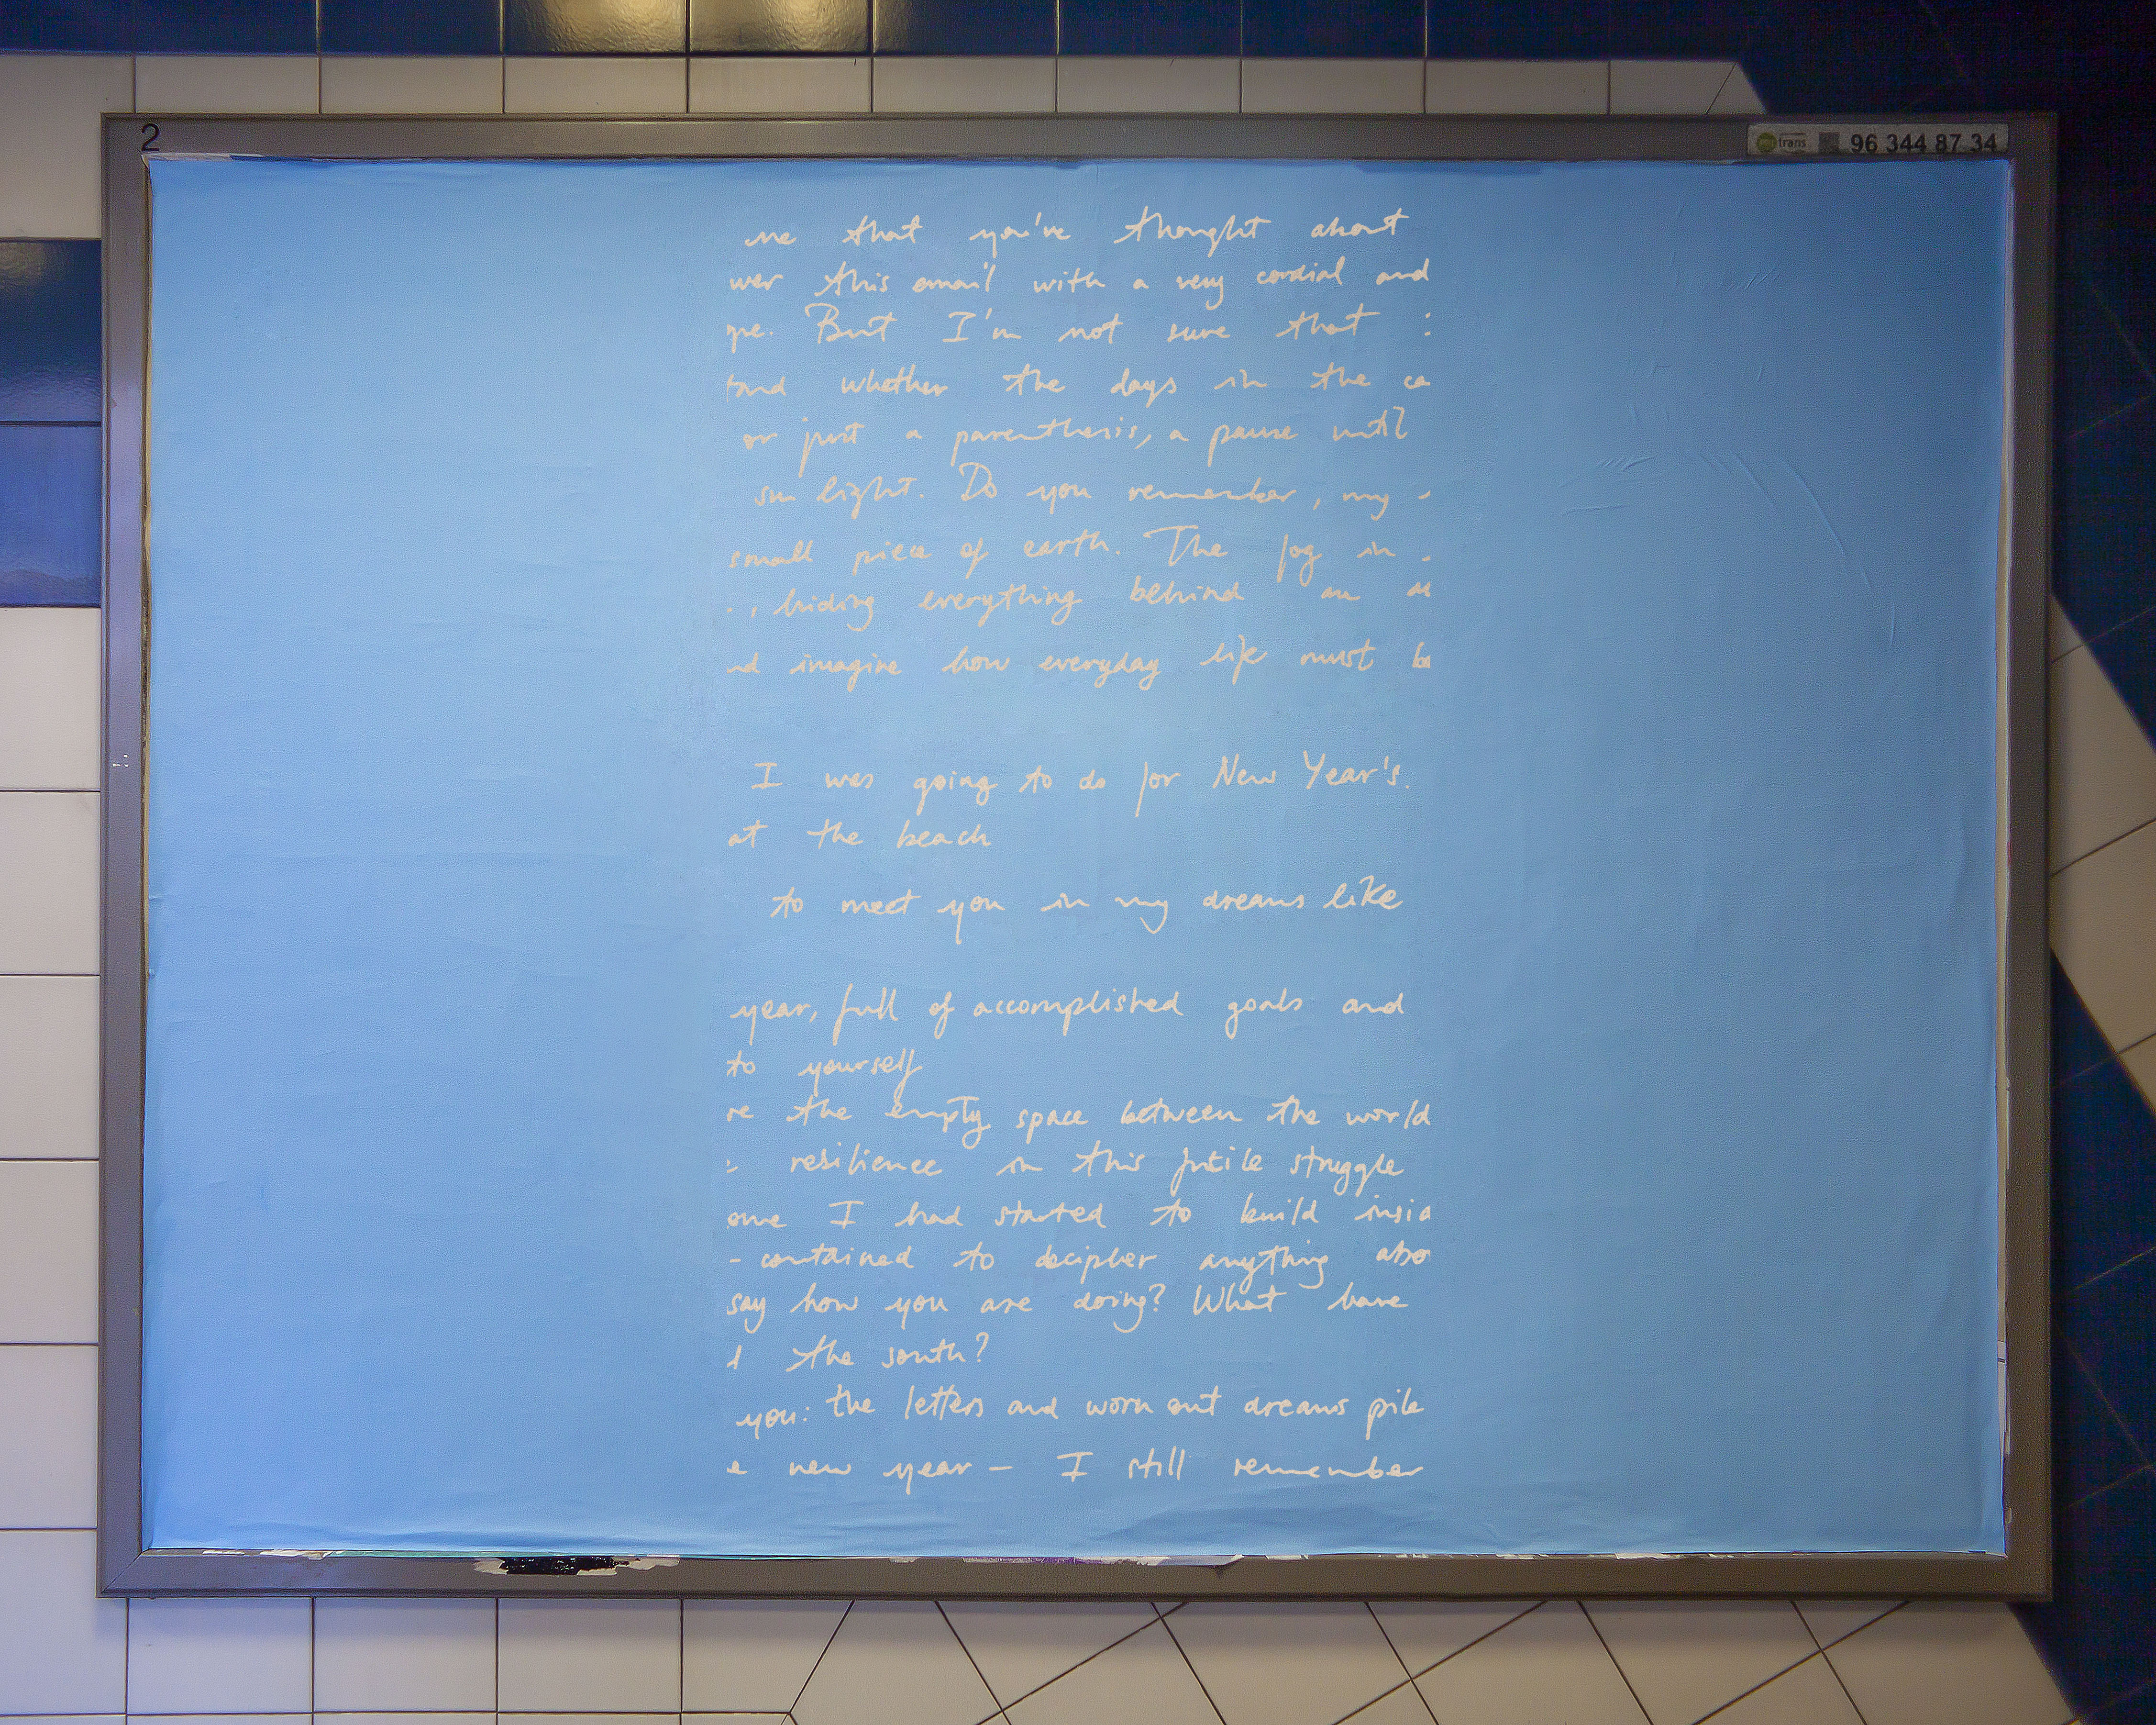 2
trans 96 344 87 34
me that you've thought about
wer this email with a very cordial and
pe. But I'm not sure that
tand whether the days in the ca
or just a parenthesis, a pause until
sun light. Do you remember, my
small piece of earth. The fog in
, hiding everything behind an al
nd imagine how everyday life must be
I was going to do for New Year's.
at the beach
to meet you in my dreams like
year, full of accomplished goals and
to yourself
re the empty space between the world
resilience in this futile struggle
one I had started to build insid
-contained to decipher anything abo
say how you are doing? What have
d the south?
you: the letters and worn out dreams pile
e new year - I still remember